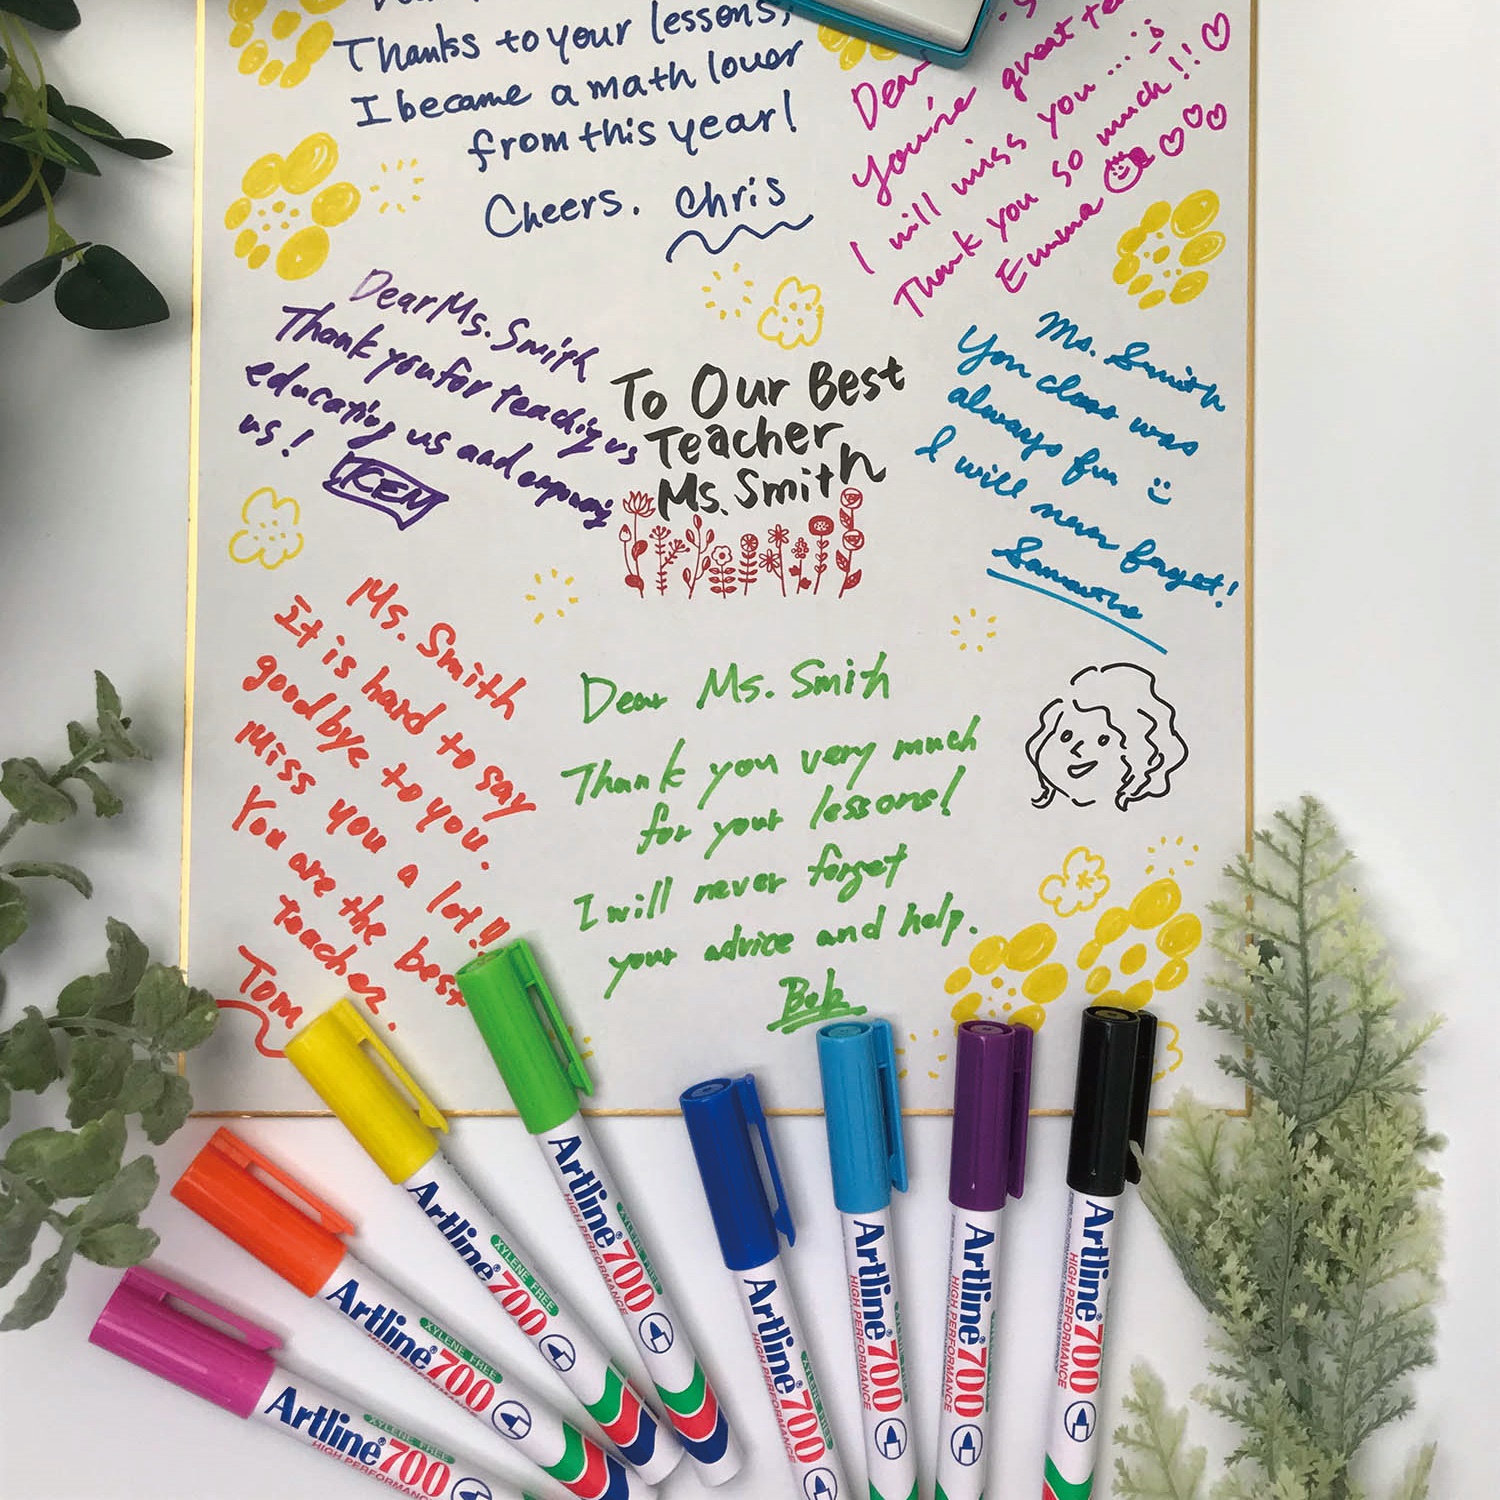 Thanks to your lessons,
I became a math lover
from this year!
Cheers. Chris
Dear
You're great
I will miss you ....
Thank you so much!!
Emma
Dear Ms. Smith
Thank you for teaching us
educating us and
us!
KEN
To Our Best
Teacher
Ms. Smith
Ms. Smith
You class was
always fun
I will never forget!
Samantha
Ms. Smith
It is hard to say
goodbye to you.
Miss you a lot!!
You are the best
teacher.
Tom
Dear Ms. Smith
Thank you very much
for your lessons!
I will never forget
your advice and help.
Bob
Artline 700
XYLENE FREE
HIGH PERFORMANCE
Artline 700
XYLENE FREE
HIGH PERFORMANCE
Artline 700
XYLENE FREE
Artline 700
XYLENE FREE
HIGH PERFORMANCE
Artline 700
HIGH PERFORMANCE
Artline 700
HIGH PERFORMANCE
Artline 700
HIGH PERFORMANCE
Artline 700
HIGH PERFORMANCE